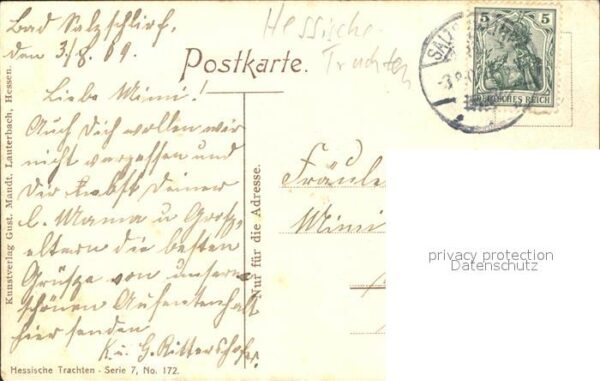 Bad Salzschlirf,
den 3/8 09.
Hessische
Trachten
Postkarte.
SALZSCHLIRF
5 5
DEUTSCHES REICH
Liebe Mimi!
Auch Dich wollen wir
nicht vergessen und
Dir nebst Deiner
l. Mama u Groß-
eltern die besten
Grüße von unserem
schönen Aufenthalt
hier senden
K. u. G. Rittershofer.
Fräulein
Mimi
Nur für die Adresse.
Kunstverlag Gust. Mandt, Lauterbach, Hessen.
Hessische Trachten - Serie 7, No. 172.
privacy protection
Datenschutz